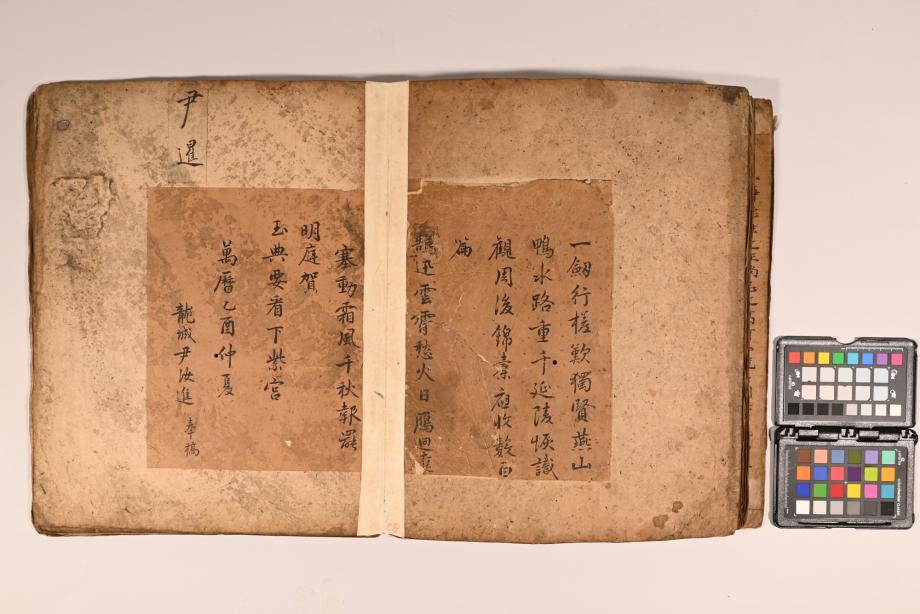 一劒行槎歎獨賢燕山
鴨水路重千延陵恢識
觀周後錦橐應收數百
篇
鵲迅雲霄愁火日鴈回
塞動霜風千秋報罷
明庭賀
玉典要看下紫宮
萬曆乙酉仲夏
龍城尹汝進 奉稿
尹暹